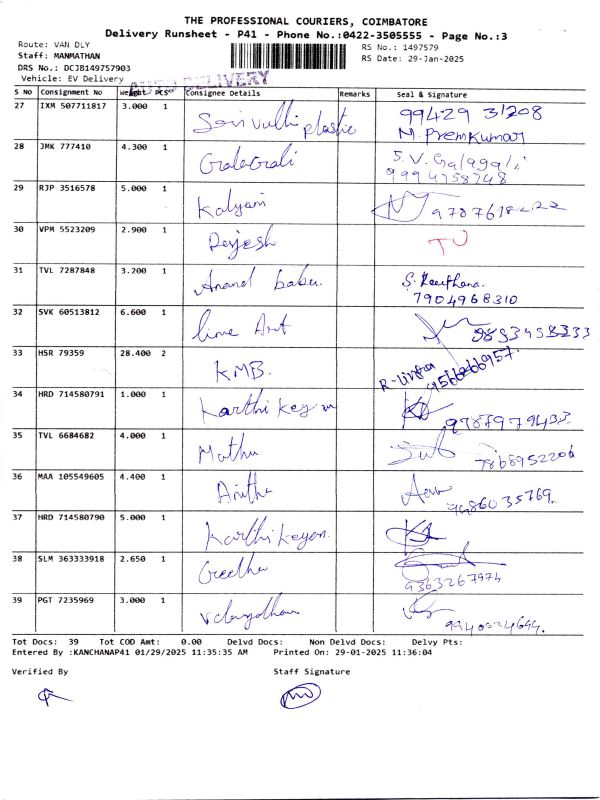 THE PROFESSIONAL COURIERS, COIMBATORE
Delivery Runsheet - P41 - Phone No.:0422-3505555 - Page No.:3
Route: VAN DLY
RS No.: 1497579
Staff: MANMATHAN
RS Date: 29-Jan-2025
DRS No.: DCJB149757903
Vehicle: EV Delivery
DELIVERY
S NO Consignment No Weight PCS Consignee Details Remarks Seal & Signature
27 IXM 507711817 3.000 1 plastic 99429 31208
M. Premkumar
28 JMK 777410 4.300 1 GalaGali S. V. Galagali
9994758748
29 RJP 3516578 5.000 1 Kalyani
30 VPM 5523209 2.900 1
31 TVL 7287848 3.200 1 Anand babu. S. Keerthana.
7904968310
32 SVK 60513812 6.600 1 lime Art
33 HSR 79359 28.400 2 KMB.
34 HRD 714580791 1.000 1 Karthikeyan
35 TVL 6684682 4.000 1 Mathu
36 MAA 105549605 4.400 1 Anitha
37 HRD 714580790 5.000 1 Karthikeyan.
38 SLM 363333918 2.650 1 Geetha 9363267974
39 PGT 7235969 3.000 1
Tot Docs: 39 Tot COD Amt: 0.00 Delvd Docs: Non Delvd Docs: Delvy Pts:
Entered By :KANCHANAP41 01/29/2025 11:35:35 AM Printed On: 29-01-2025 11:36:04
Verified By Staff Signature